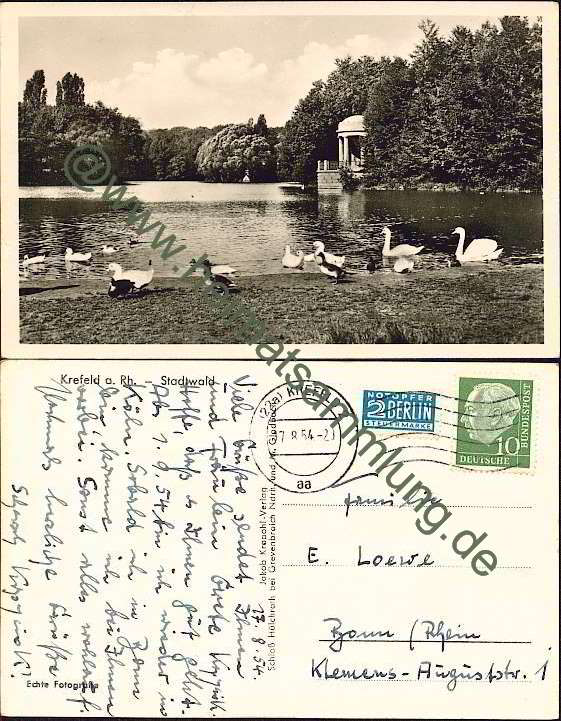 Krefeld a. Rh. – Stadtwald
17.8.54
Viele Grüße sendet Ihnen
und Frau
hoffe, daß es Ihnen gut geht.
Ab 1.9.54 bin ich wieder in
Köln. Sobald ich in Bonn
bin, komme ich zu Ihnen
vorbei. Sonst alles wohlauf.
Nochmals herzliche Grüße
Echte Fotografie
Jakob Krapohl-Verlag
Schloß Hülchrath bei Grevenbroich Ndrrh. und M. Gladbach
(22a) KREFELD
17.8.54
aa
NOTOPFER
2 BERLIN
STEUERMARKE
10
DEUTSCHE
BUNDESPOST
Familie
E. Loewe
Bonn/Rhein
Klemens-Auguststr. 1